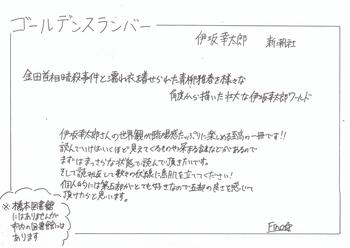 ゴールデンスランバー
伊坂幸太郎 新潮社
金田首相暗殺事件と濡れ衣を着せられた青柳雅春を様々な
角度から描いた壮大な伊坂幸太郎ワールド
伊坂幸太郎さんの世界観が臨場感たっぷりに楽しめる至高の一冊です!!
読んでいけばいくほど見えてくるものや深まる謎などがあるので
まずはまっさらな状態で読んで頂きたいです。
そして読み返して数々の伏線に鳥肌を立ててください!
個人的には第五部がとても好きなので五部の良さを感じて
頂けたらと思います。
※橋本図書館
にはありませんが
市内の図書館には
あります